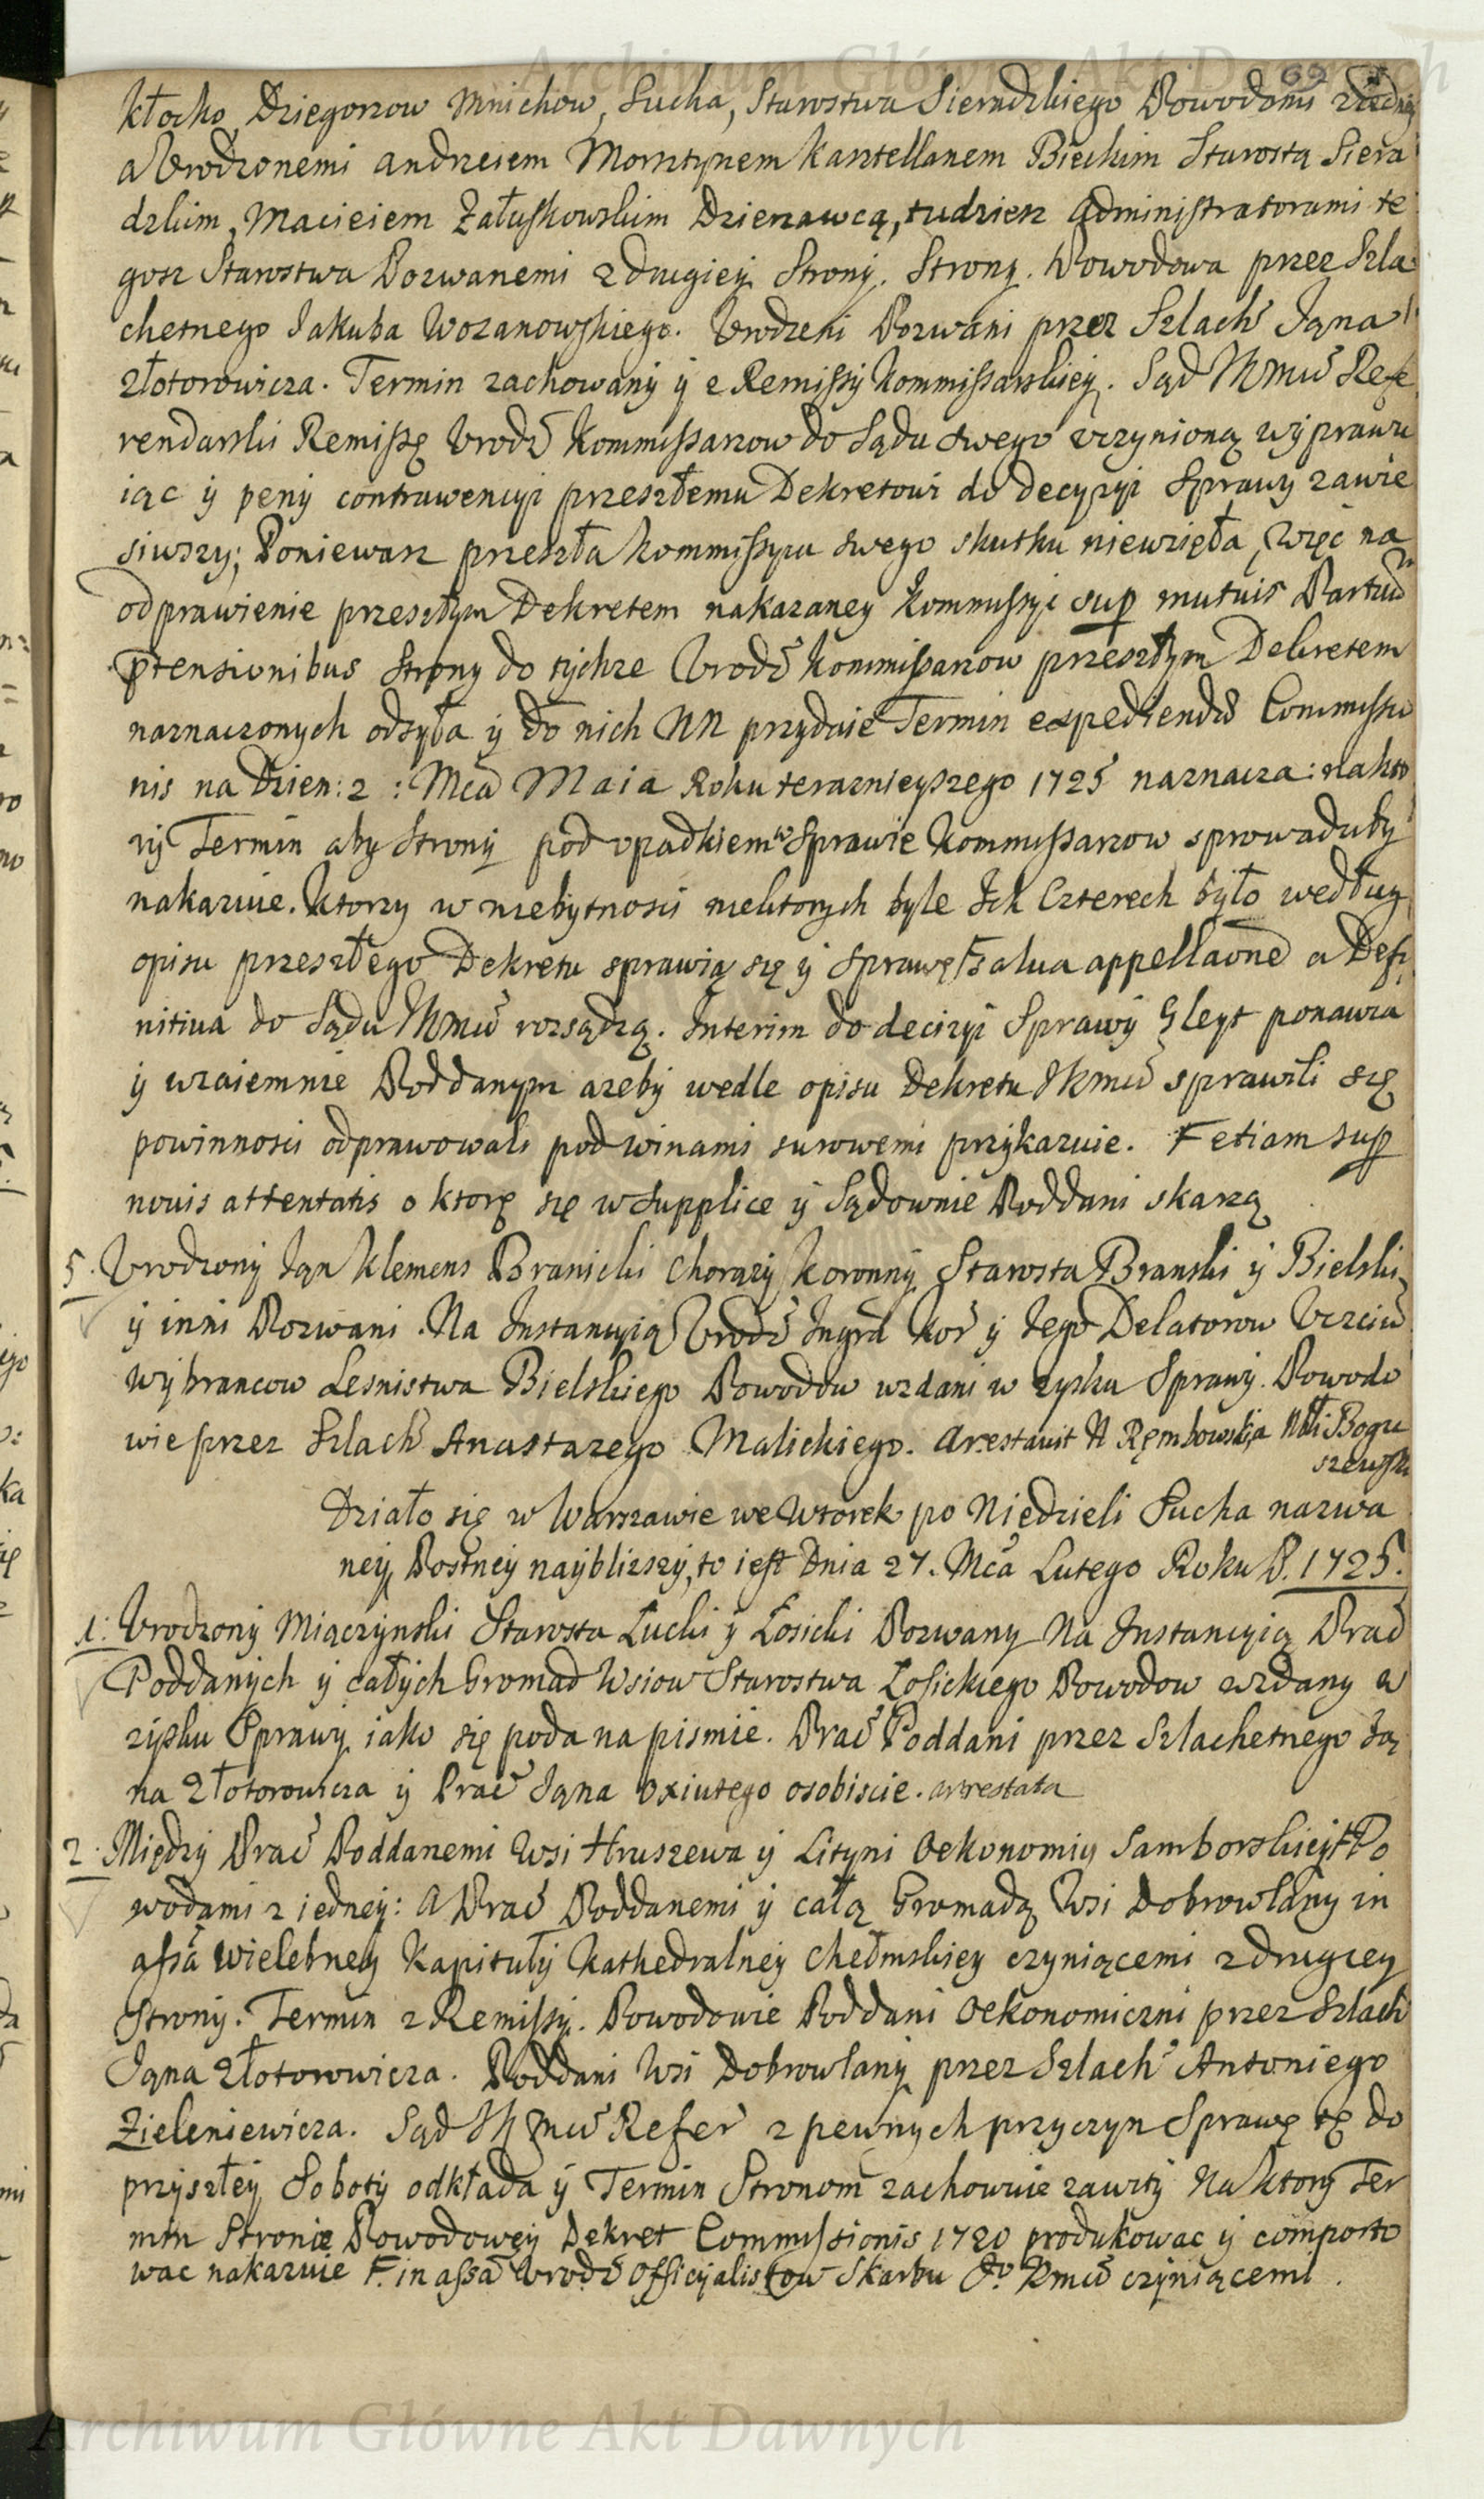 Archiwum Główne Akt Dawnych
69
kłocko, Dziegorzow Mnichow, Sucha, Starostwa Sieradzkiego Powodami z iedney
a Urodzonemi Andrzeiem Morsztynem Kasztellanem Bieckim Starostą Siera
dzkim, Macieiem Załuskowskim Dzierzawcą, tudziesz Administratorami te
gosz Starostwa Pozwanemi z drugiey Strony. Strony. Powodowa przez Szla
chetnego Jakuba Wozanowskiego. Urodzeni Pozwani przez Szlach Jana
Złotorowicza. Termin zachowany y e Remissy Kommissarskiey. Sąd JKmci Refe
rendarski Remissę Urodz Kommissarzow do Sądu swego uczynioną wyprawu
iąc y peny contrawencyi przeszłemu Dekretowi do decyzyi Sprawy zawie
siwszy; Poniewasz przeszła Kommissya swego skutku niewzięła, więc na
odprawienie przeszłym Dekretem nakazaney Kommissyi sup mutuis Partiu
ptensionibus Strony do tychze Urodz Kommissarzow przeszłym Dekretem
naznaczonych odsyła y do nich NN przydaie Termin expediendæ Commissio
nis na Dzien: 2 : Mca Maia Roku terazniejszego 1725 naznacza: na kto
ry Termin aby Strony pod upadkiem w Sprawie Kommissarzow sprowadziły
nakazuie. Ktorzy w niebytnosci niektorych byle Ich Czterech było według
opisu przeszłego Dekretu sprawią się y Sprawę F salva appellaone a Defi
nitiva do Sądu JKmci rozsądzą. Interim do decizyi Sprawy Gleyt ponawia
y wzaiemnie Poddanym azeby wedle opisu Dekretu JKmci sprawili się
powinnosci odprawowali pod winami surowemi przykazuie. F etiam sup
novis attentatis o ktorę się w Supplice y Sądownie Poddani skarzą
5. Urodzony Jan Klemens Branicki Chorązy Koronny Starosta Branski y Bielski
y inni Pozwani. Na Instancyią Urodz Instig Kor y Jego Delatorow Uczciw
wybrancow Lesnistwa Bielskiego Powodow wzdani w zysku Sprawy. Powodo
wie przez Szlach Anastazego Malickiego. Arestavit N Rembowski NN Bogu
szewski
Działo się w Warszawie we Wtorek po Niedzieli Sucha nazwa
ney Postney nayblizszy, to iest Dnia 27. Mca Lutego Roku P. 1725.
1. Urodzony Miączynski Starosta Lucki y Łosicki Pozwany Na Instancyią Prac
Poddanych y całych Gromad Wsiow Starostwa Łosickiego Powodow wzdany w
zysku Sprawy iako się poda na pismie. Prac Poddani przez Szlachetnego Ja
na Złotorowicza y Prac Jana Oxiutego osobiscie. arrestata
2. Między Prac Poddanemi Wsi Hruszewa y Lityni Oekonomiy Samborskiey F Po
wodami z iedney: A Prac Poddanemi y całą Gromadą Wsi Dobrowlany in
assa Wielebney Kapituły Kathedralney Chełmskiey czyniącemi z drugiey
Strony. Termin z Remissy. Powodowie Poddani Oekonomiczni przez Szlach
Jana Złotorowicza. Poddani Wsi Dobrowlany przez Szlach Antoniego
Zieleniewicza. Sąd JKmci Refer z pewnych przyczyn Sprawę tę do
przyszłey Soboty odkłada y Termin Stronom zachowuie zawity Na ktory Ter
min Stronie Powodowey Dekret Commissionis 1720 produkowac y comporto
wac nakazuie F. in assa Urodz Officyalistow Skarbu Jo Kmci czyniącemi.
Archiwum Główne Akt Dawnych